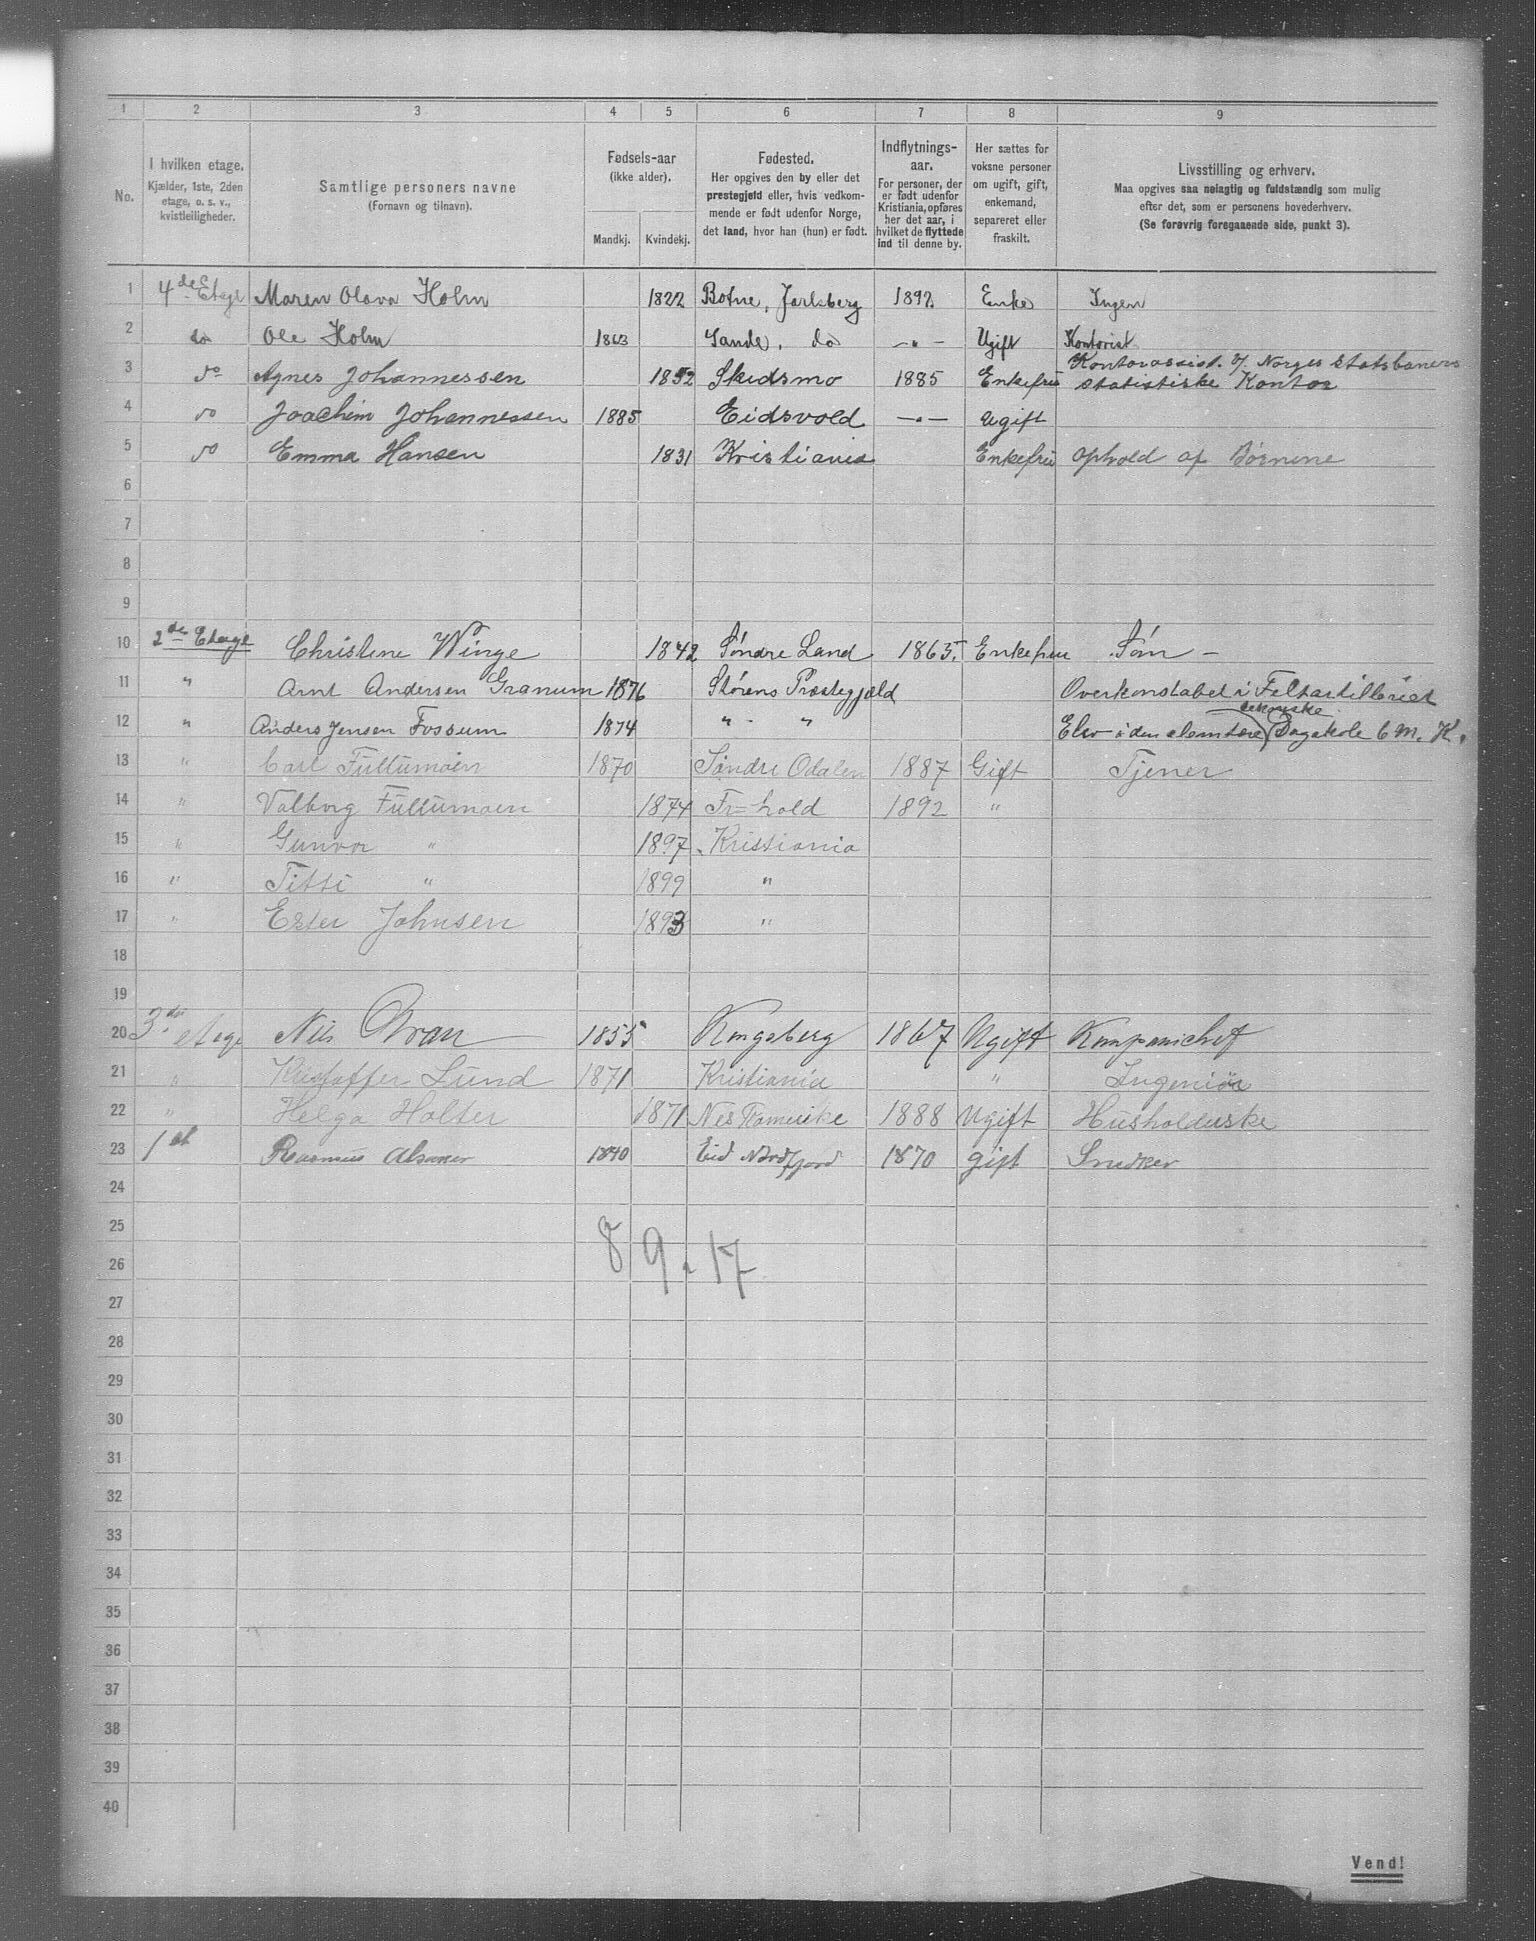 1 2 3 4 5 6 7 8 9
No.
I hvilken etage.
Kjælder, 1ste, 2den
etage, o. s. v.,
kvistleiligheder.
Samtlige personers navne
(Fornavn og tilnavn).
Fødsels-aar
(ikke alder).
Mandkj. Kvindekj.
Fødested.
Her opgives den by eller det
prestegjeld eller, hvis vedkom-
mende er født udenfor Norge,
det land, hvor han (hun) er født.
Indflytnings-
aar.
For personer, der
er født udenfor
Kristiania, opføres
her det aar, i
hvilket de flyttede
ind til denne by.
Her sættes for
voksne personer
om ugift, gift,
enkemand,
separeret eller
fraskilt.
Livsstilling og erhverv.
Maa opgives saa nøiagtig og fuldstændig som mulig
efter det, som er personens hovederhverv.
(Se forøvrig foregaaende side, punkt 3).
1 4de Etage Maren Olava Holm 1822 Botne, Jarlsberg 1892 Enke Ingen
2 do Ole Holm 1863 Sande, do —„— Ugift Kontorist
3 do Agnes Johannessen 1852 Skedsmo 1885 Enkefru Kontorassist. v/ Norges Statsbaners
statistiske Kontor
4 do Joachim Johannessen 1885 Eidsvold —„— Ugift
5 do Emma Hansen 1831 Kristiania Enkefru Ophold af Børnene
6
7
8
9
10 2den Etage Christine Winge 1842 Søndre Land 1865. Enkefru Søm —
11 " Arnt Andersen Granum 1876 Størens Præstegjæld Overkonstabel i Feltartilleriet
12 " Anders Jensen Fossum 1874 " - " Elev i den elemtære tekniske Dagskole 6 M. K.
13 " Carl Fullumoen 1870 Søndre Odalen 1887 Gift Tjener
14 " Valborg Fullumoen 1874 Fr=hald 1892 "
15 " Gunvor " 1897 Kristiania
16 " Titti " 1899 "
17 " Ester Johnsen 1893 "
18
19
20 3die etage Nils 1855 Kongsberg 1867 Ugift Kompanichef
21 " Kristoffer Lund 1871 Kristiania " Ingeniør
22 " Helga Holter 1871 Nes Romerike 1888 Ugift Husholderske
23 1st Rasmus 1840 Eid Nordfjord 1870 gift Snedker
24
25
8 9 . 17
26
27
28
29
30
31
32
33
34
35
36
37
38
39
40
Vend!